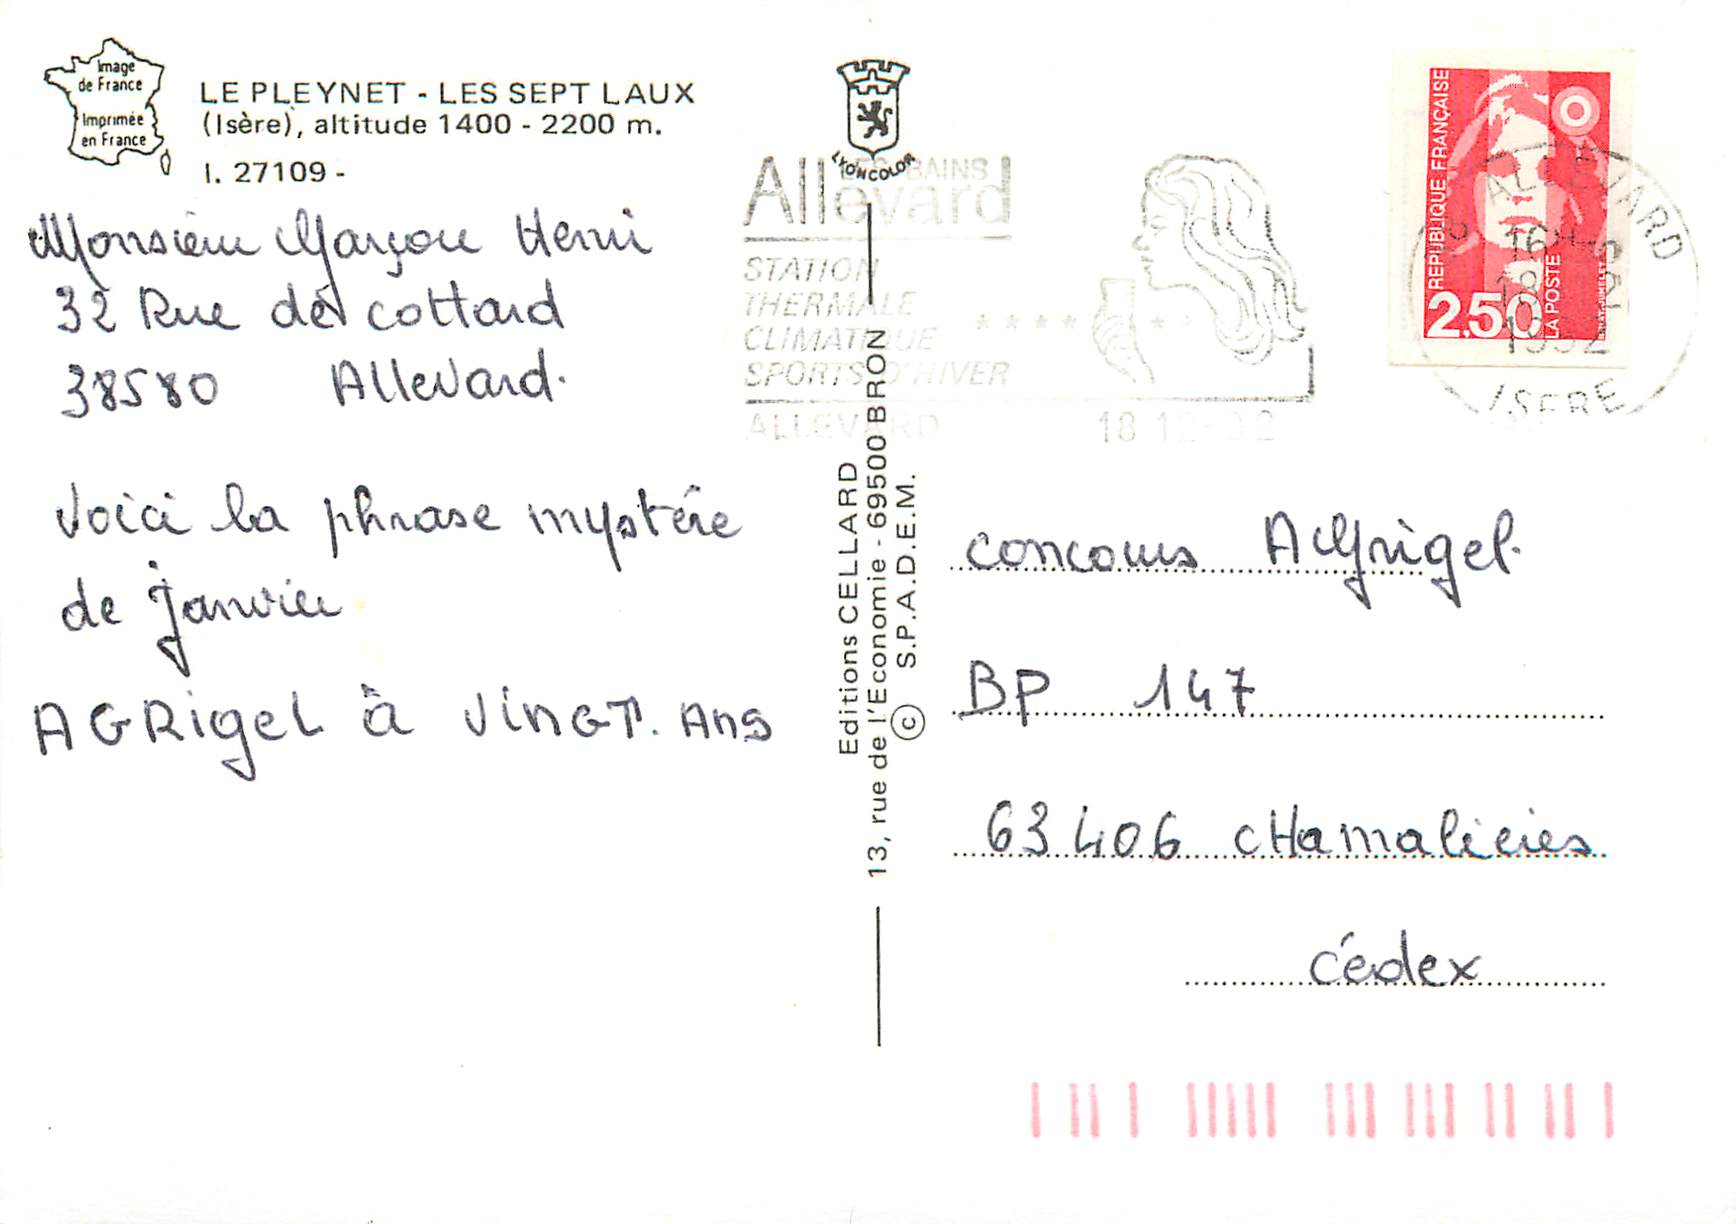 Image
de France
Imprimée
en France
LE PLEYNET - LES SEPT LAUX
(Isère), altitude 1400 - 2200 m.
I. 27109 -
Monsieur Marçou Henri
32 Rue de cottard
38580 Allevard.
Voici la phrase mystère
de Janvier
AGRigeL à VINGT. Ans
LYONCOLOR
Allevard
LES BAINS
STATION
THERMALE
CLIMATIQUE
SPORTS D'HIVER
ALLEVARD 18 12-92
Editions CELLARD
13, rue de l'Economie - 69500 BRON
© S.P.A.D.E.M.
REPUBLIQUE FRANÇAISE
2,50
LA POSTE
38 ALLEVARD
16H45
18 12
1992
ISERE
concours AGrigel.
BP 147
63406 CHamalieres
Cédex